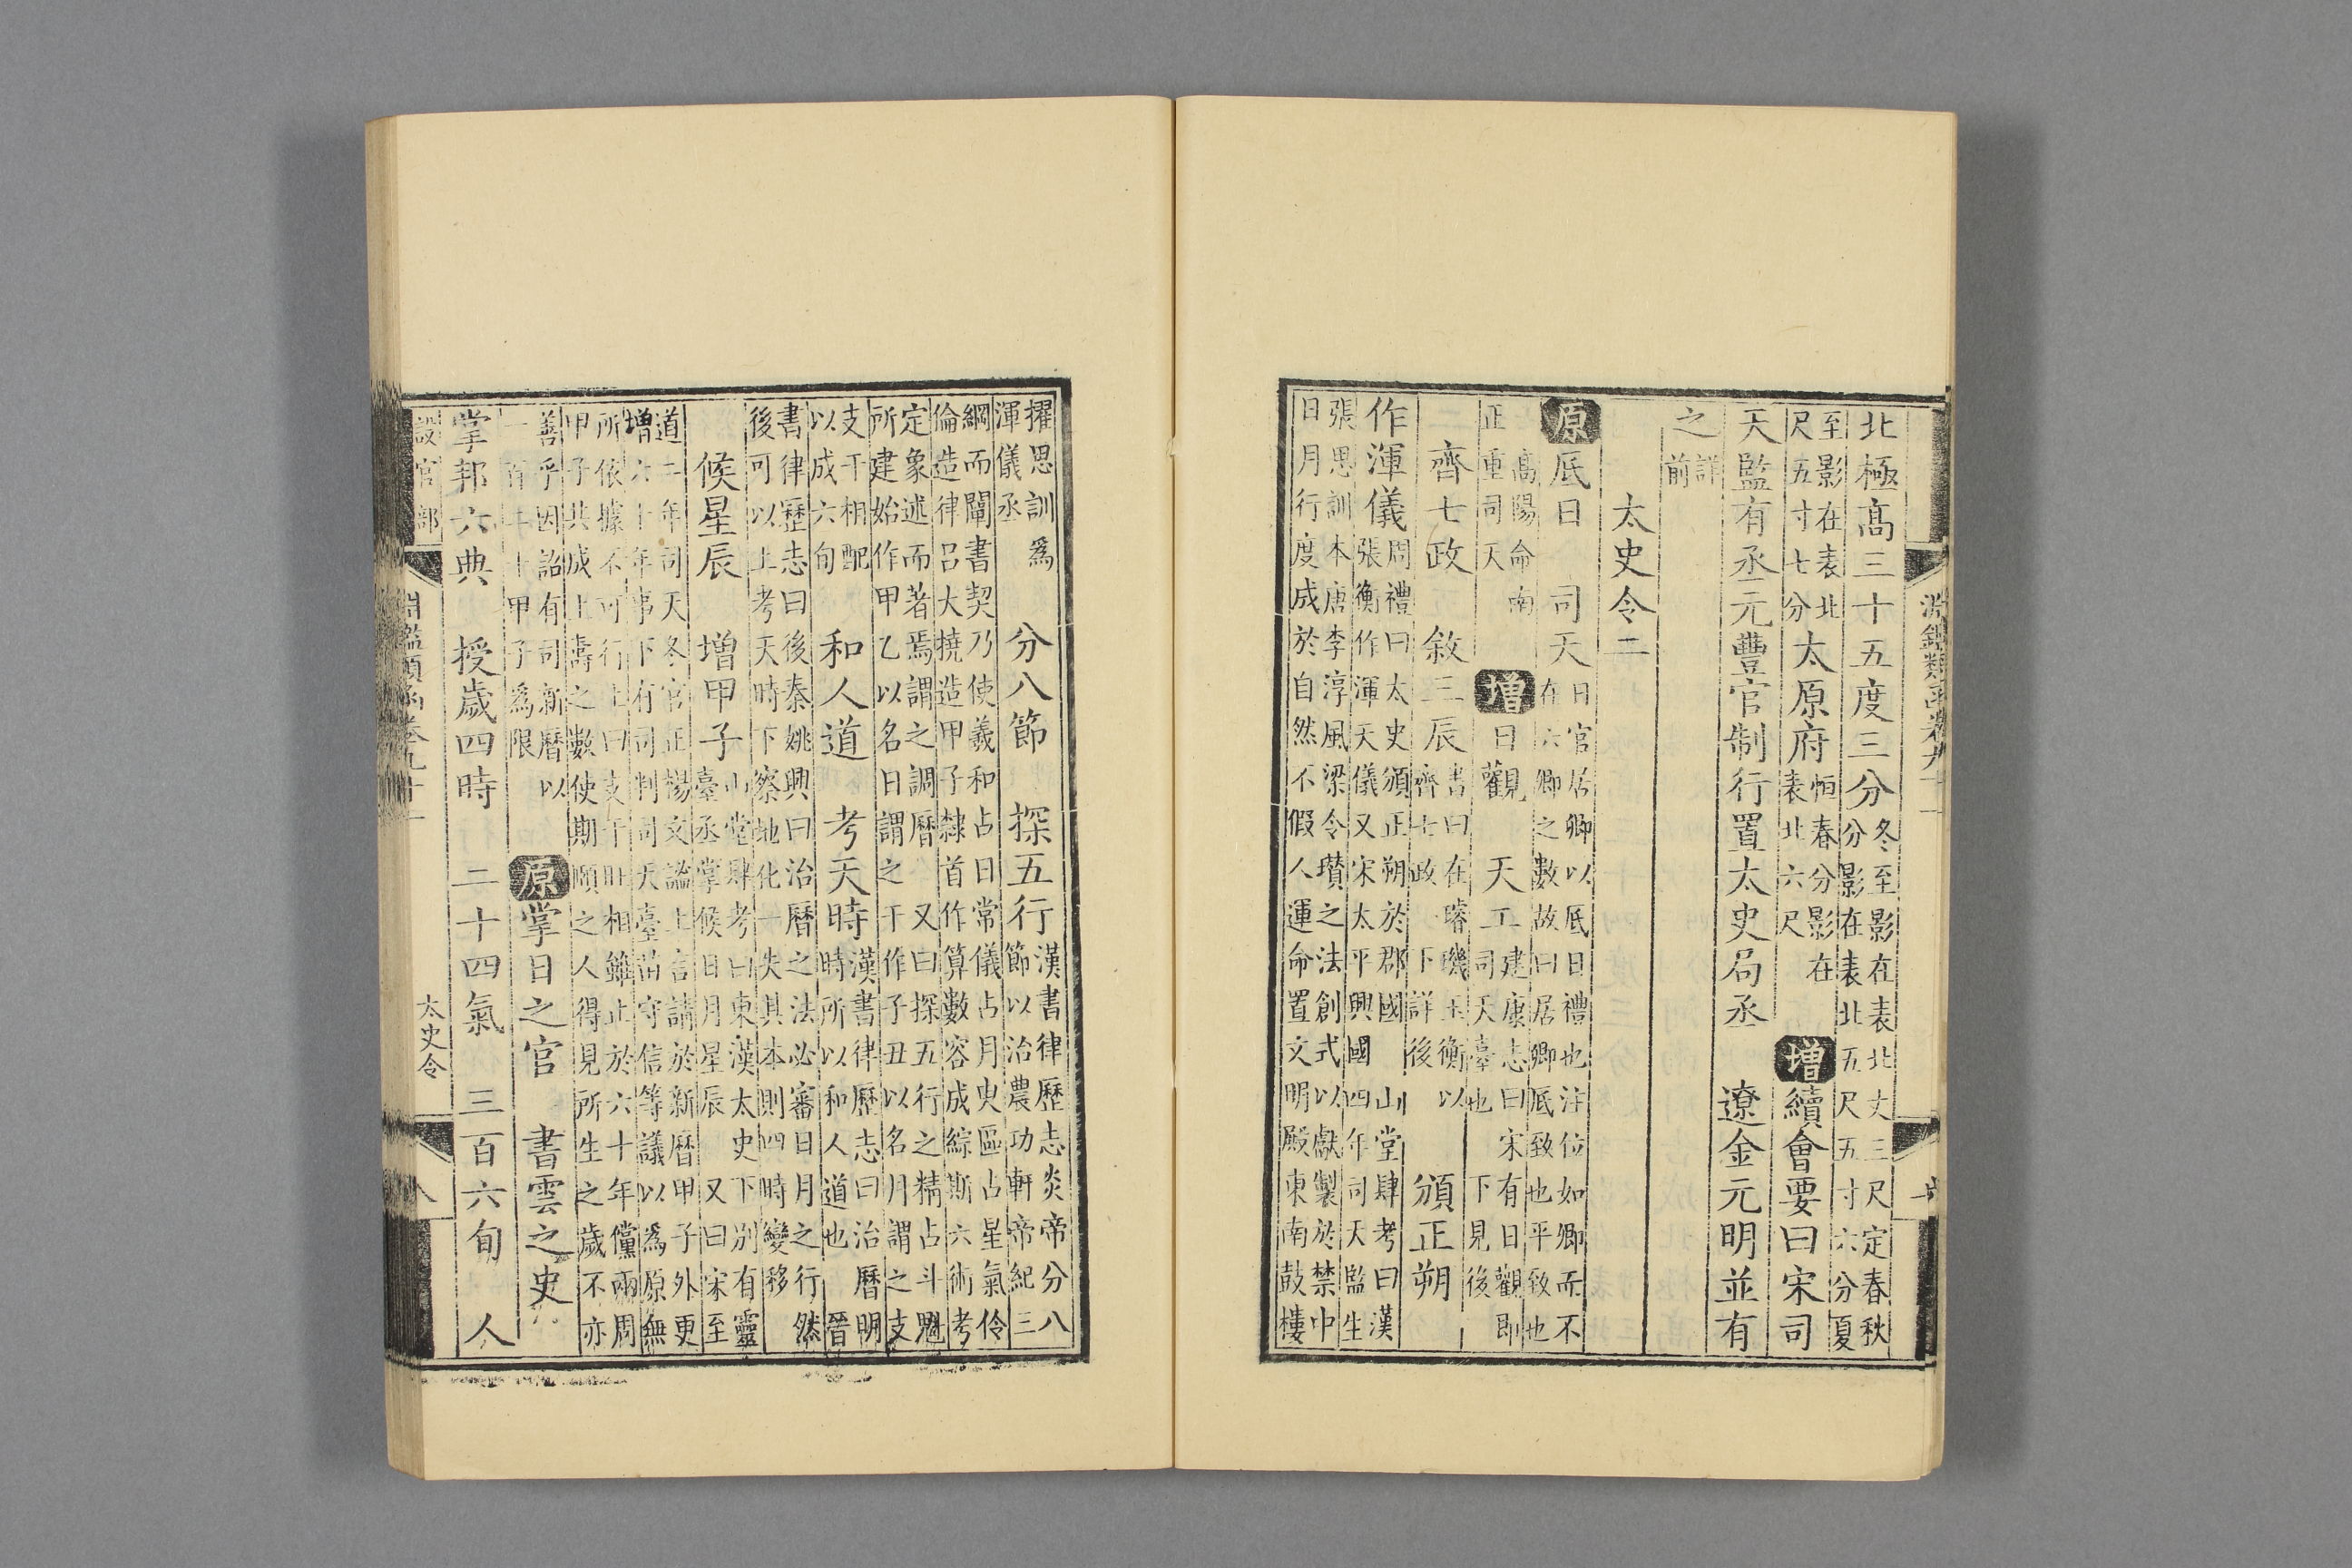 北極髙三十五度三分冬至影在表北丈三尺定春秋
分影在表北五尺五寸六分夏
至影在表北
尺五寸七分太原府恒春分影在
表北六尺增續會要曰宋司
天監有丞元豐官制行置太史局丞 遼金元明並有
詳
之前
太史令二
原底日 司天日官居卿以底日禮也注位如卿而不
在六卿之數故曰居卿底致也平致也
髙陽命南
正重司天 增日觀 天工建康志曰宋有日觀即
司天臺也 下見後
齊七政 敘三辰書曰在璿璣玉衡以
齊七政 下詳後 頒正朔
作渾儀周禮曰太史頒正朔於郡國 山堂肆考曰漢
張衡作渾天儀又宋太平興國四年司天監生
張思訓本唐李淳風梁令瓉之法創式以獻製於禁中
日月行度成於自然不假人運命置文明殿東南鼓樓
淵鑑類函卷九十一
擢思訓爲
渾儀丞 分八節 探五行漢書律歷志炎帝分八
節以治農功軒帝紀三
綱而闡書契乃使羲和占日常儀占月臾區占星氣伶
倫造律呂大撓造甲子隸首作算數容成綜斯六術考
定象述而著焉謂之調曆 又曰探五行之精占斗魁
所建始作甲乙以名日謂之干作子丑以名月謂之支
支干相配
以成六旬 和人道 考天時漢書律歷志曰治曆明
時所以和人道也 晉
書律歷志曰後秦姚興曰治曆之法必審日月之行然
後可以上考天時下察地化一失其本則四時變移
候星辰 增甲子山堂肆考曰東漢太史下別有靈
臺丞掌候日月星辰 又曰宋至
道二年司天冬官正楊文謐上言請於新曆甲子外更
增六十年事下有司判司天臺苗守信等議以爲原無
所依據不可行上曰支干相雖止於六十年儻兩周
甲子共成上壽之數使期頤之人得見所生之歲不亦
善乎因詔有司新曆以
一百二十甲子爲限 原掌日之官 書雲之史
掌邦六典 授歲四時 二十四氣 三百六旬 人
設官部
淵鑑類函卷九十一
太史令
八